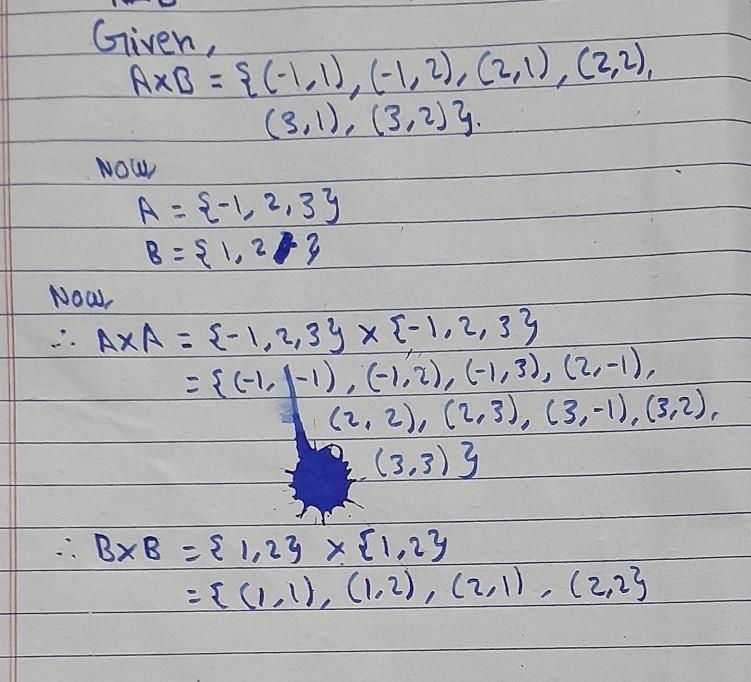 Given,
A×B = {(-1,1), (-1,2), (2,1), (2,2),
(3,1), (3,2)}.
Now
A = {-1, 2, 3}
B = {1, 2}
Now
∴ A×A = {-1, 2, 3} × {-1, 2, 3}
= {(-1, -1), (-1,2), (-1,3), (2,-1),
(2, 2), (2,3), (3,-1), (3,2),
(3,3)}
∴ B×B = {1,2} × {1,2}
= {(1,1), (1,2), (2,1), (2,2}